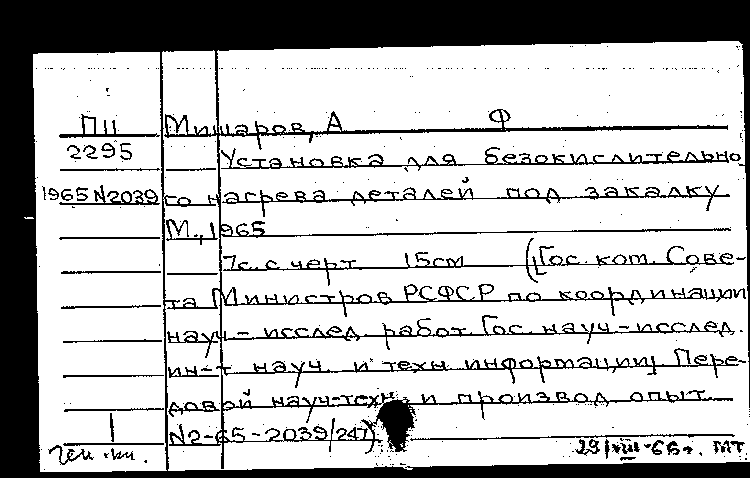 П11 Мишаров, А Ф
2295 Установка для безокислительно
1965 N2039 го нагрева деталей под закалку
М., 1965
7с. с черт 15см ([Гос. ком. Сове-
та Министров РСФСР по координации
науч-исслед. работ Гос. науч-исслед.
ин-т науч. и техн информации] Пере-
довой науч-техн. и производ опыт
1 N2-65-2039/247)
Ген. кн. 29/VIII-66г. МТ